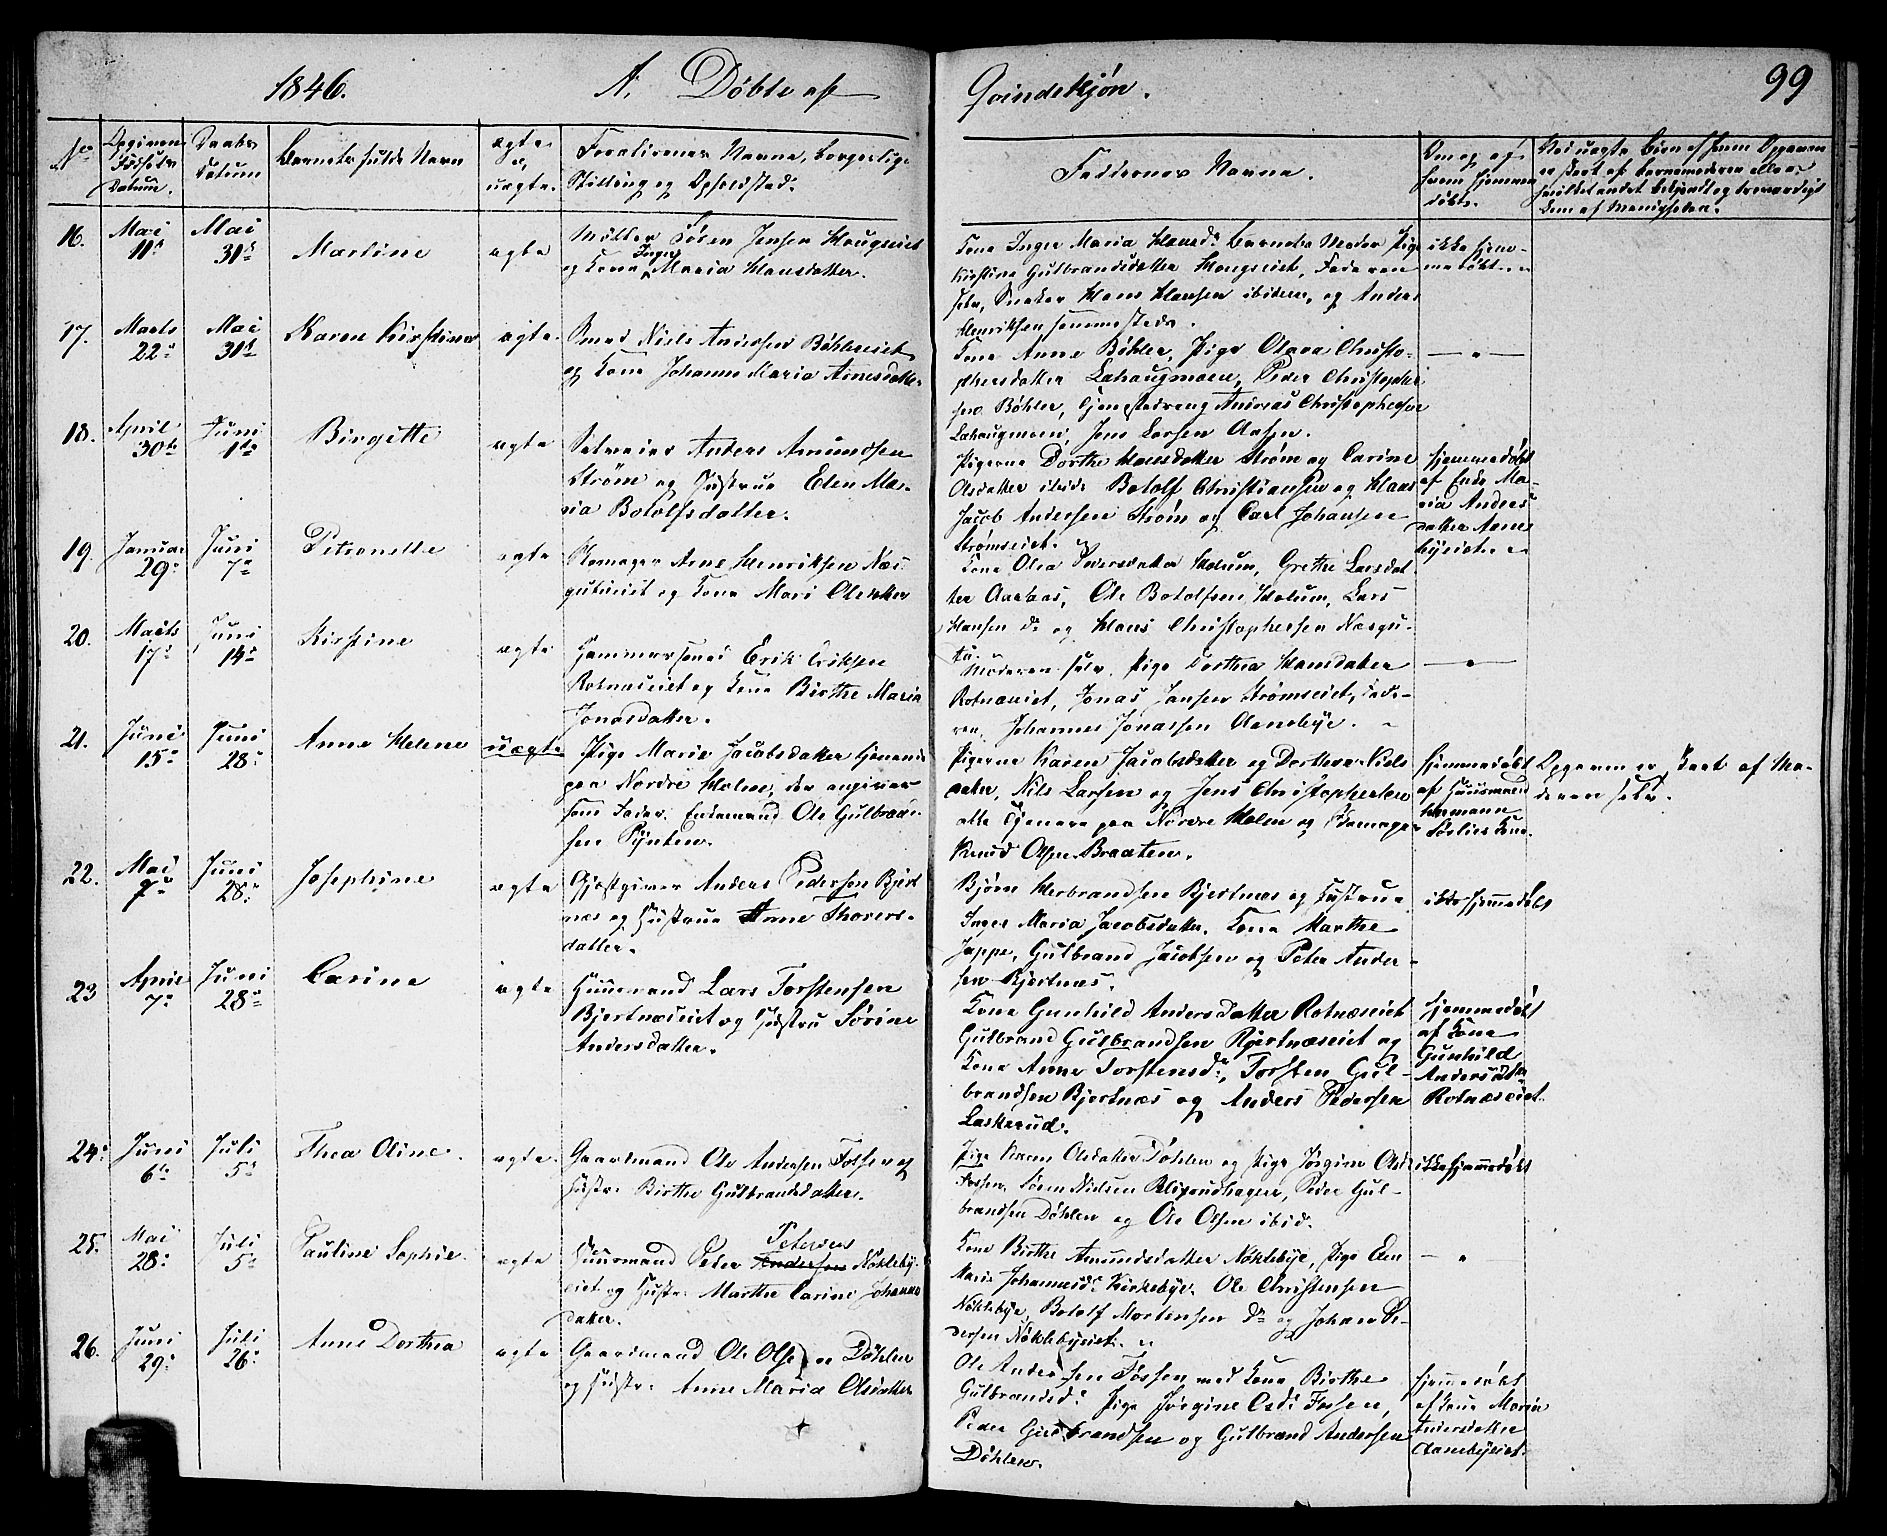 1846.
A. Döbte af
Qvindekjön.
99
No
Opgivne Fødsels Datum.
Daabs Datum
Barnets fulde Navn
ægte el. uægte.
Forældrenes Navne, borgerlige
Stilling og Opholdsted.
Faddernes Navne.
Om og af hvem hjemmedöbt.
16.
Mai 11te
Mai 31te
Martine
ægte
Möller Sören Jensen Haugseiet
og Kone Inger Maria Hansdatter.
Kone Inger Maria Hansdr Barnets Moder Pige
Kirstine Gulbrandsdatter Haugseiet, Faderen
selv, Sneker Hans Hansen ibidem, og Anders
Henriksen sammesteds.
ikke hjem-
medöbt.
17.
Marts 22de
Mai 31te
Karen Kirstine
ægte.
Smed Niels Andersen Böhlereiet
og Kone Johanne Maria Arnesdatter
Kone Anne Böhler, Pige Olava Christo-
phersdatter Lahaugmoen, Peder Christopher
sen Böhler, Tjenestedreng Andreas Christophersen
Lahaugmoen, Jens Larsen Aasen.
— " —
18.
April 30te
Juni 1ste
Birgitte
ægte
Selveier Anders Amundsen
Ström og Hustrue Elen Ma-
ria Botolfsdatter.
Pigerne Dorthe Hansdatter Ström og Carine
Olsdatter ibid. Botolf Christiansen og Hans
Jacob Andersen Ström og Carl Johansen
Strömseiet.
hjemmedöbt
af Enke Ma-
ria Anders
datter Aane
byeiet.
19.
Januar 29de
Juni 7de
Petronelle
ægte
Skomager Arne Henriksen Næs
gutueiet og Kone Mari Olsdatter
Kone Olea Pedersdatter Holum, Grethe Larsdat-
ter Aaraas, Ole Botolfsen Holum, Lars
Hansen do og Hans Christophersen Næsgu-
tu.
20.
Marts 17de
Juni 14de
Kirstine
ægte
Hammersmed Erik Eriksen
Rotnæseiet og Kone Birthe Maria
Jonasdatter.
Moderen selv, Pige Dorthea Hansdatter
Rotnæseiet, Jonas Jansen Strömseiet, Fade-
ren, Johannes Jonassen Aanebye.
— " —
21.
Juni 15de
Juni 28de
Anne Helene
uægte
Pige Marie Jacobsdatter tjenende
paa Nordre Holm, der angiver
som Fader Enkemand Ole Gulbrand-
sen Pynten.
Pigerne Karen Jacobsdatter og Dorthea Niels
datter, Nils Larsen og Jens Christophersen
alle Tjenere paa Nordre Holm og Skomager
Knud Olsen Braaten.
hjemmedöbt
af Huusmand
Hermann
Sörlies Kone.
Opgaven er skeet af Mo-
deren selv.
22.
Mai 7de
Juni 28de
Josephine
ægte
Gjæstgiver Anders Pedersen Bjert
næs og Hustrue Anne Thorers-
datter.
Björn Herbrandsen Bjertnæs og Hustrue
Inger Maria Jacobsdatter. Kone Marthe
Jappe, Gulbrand Jacobsen og Peter Ander-
sen Bjertnæs.
ikke hjemmedöbt
23
April 7de
Juni 28de
Carine
ægte
Huusmand Lars Torstensen
Bjertnæseiet og Hustru Sörine
Andersdatter.
Kone Gunhild Andersdatter Rotnæseiet
Gulbrand Gulbrandsen Bjertnæseiet og
Kone Anne Torstensdr, Torsten Gul-
brandsen Bjertnæs og Anders Pedersen
Laskerud.
hjemmedöbt
af Kone
Gunhild
Andersdtr
Rotnæseiet.
24de
Juni 6te
Juli 5te
Thea Oline.
ægte.
Gaardmand Ole Andersen Fossen og
Hustr. Birthe Gulbrandsdatter.
Pige Karen Olsdatter Döhlen og Pige Jörgine Olsdr
Fossen, Sören Nielsen Bligendhagen, Peder Gul-
brandsen Döhlen og Ole Olsen ibid.
ikke hjemmedöbt
25.
Mai 28de
Juli 5te
Pauline Sophie.
ægte
Huusmand Peder Andersen Petersen Nöklebÿ-
eiet og Hustr. Marthe Carine Johannes
datter.
Kone Birthe Amundsdatter Nöklebÿe, Pige Elen
Marie Johannesdr Kirkebÿe. Ole Christensen
Nöklebÿe, Botolf Mortensen do og Johan Pe-
dersen Nöklebÿeiet.
— "
26.
Juni 29de
Juli 26de
Anne Dorthea
ægte
Gaardmand Ole Olsen Döhlen
og Hustr. Anne Maria Olsdatter
Ole Andersen Fossen med Kone Birthe
Gulbrandsdr Pige Jörgine Olsdr Fossen,
Peder Gulbrandsen og Gulbrand Andersen
Döhlen.
hjemmedöbt
af Kone Maria
Andersdatter
Aanebÿeiet.